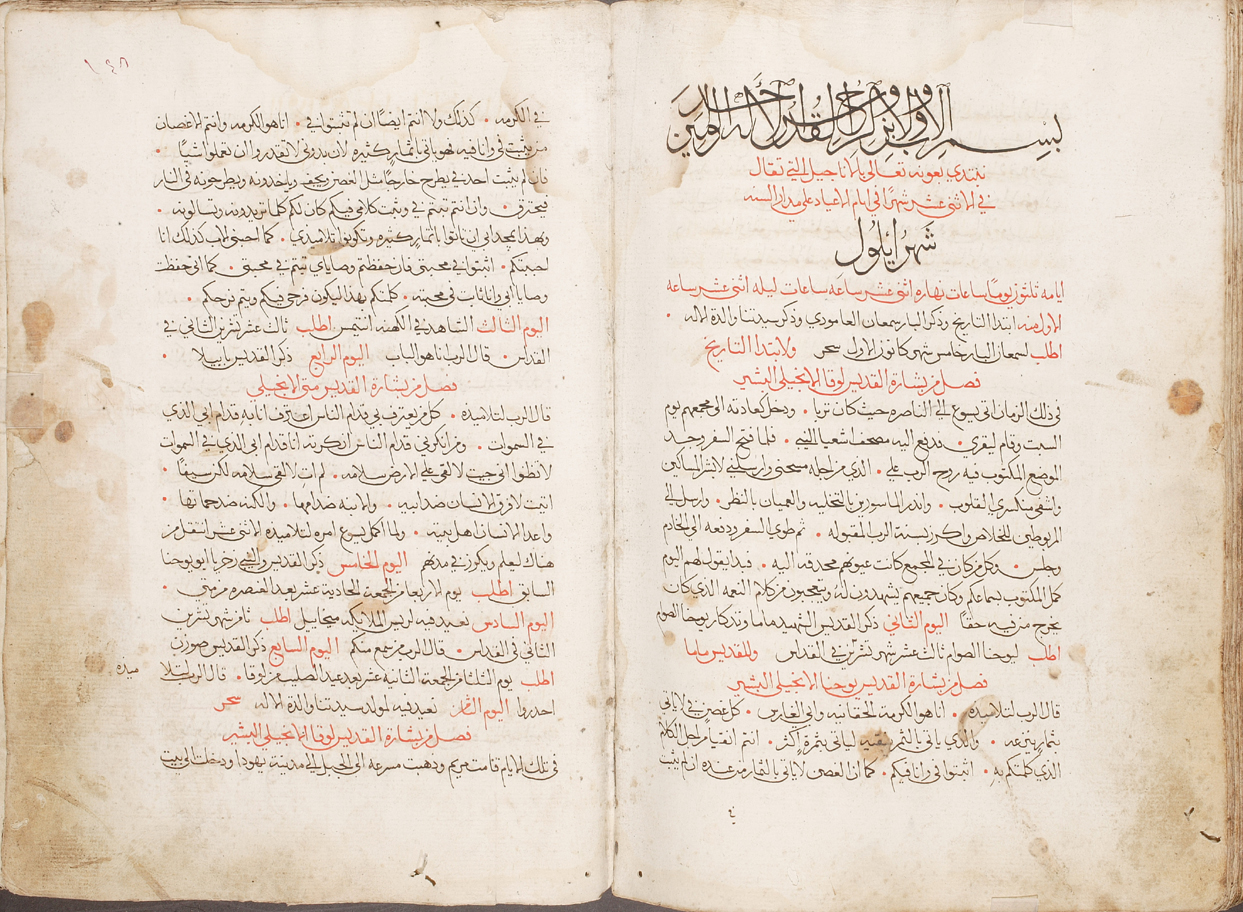 بسم الاب والابن والروح القدس الاه واحد امين
نبتدي بعونه تعالى بالاناجيل التي تقال
في الاثني عشر شهرًا في ايام الاعياد على مدار السنه
شهر ايلول
ايامه ثلثون يومًا ساعات نهاره اثنى عشر ساعه ساعات ليله اثنى عشر ساعه
الاول منه ابتدا التاريخ وذكر البار سمعان العامودي وذكر سيدتنا والدة الاله •
اطلب لسمعان البار خامس شهر كانون الاول سحر ولابتدا التاريخ
فصل من بشارة القديس لوقا الانجيلي البشير
في ذلك الزمان اتى يسوع الى الناصره حيث كان تربا • ودخل كعادته الى مجمعهم يوم
السبت وقام ليقرى • فدفع اليه مصحف اشعيا النبي • فلما فتح السفر وجد
الموضع المكتوب فيه روح الرب علي • الذي من اجله مسحني وارسلني لابشر المساكين
واشفي منكسري القلوب • وانذر الماسورين بالتخليه والعميان بالنظر • وارسل الى
المربوطين للخلاص واكرز بسنة الرب المقبوله • ثم طوى السفر ودفعه الى الخادم
وجلس • وكل من كان في المجمع كانت عيونهم محدقه اليه • فبدا يقول لهم اليوم
كمل المكتوب بسماعكم وكان جميعهم يشهدون له ويتعجبون من كلام النعمه الذي كان
يخرج من فيه حقًا اليوم الثاني ذكر القديس الشهيد ماما وتذكار يوحنا الصوام
اطلب ليوحنا الصوام ثالث عشر شهر تشرين في القداس وللقديس ماما
فصل من بشارة القديس يوحنا الانجيلي البشير
قال الرب لتلاميذه • انا هو الكرمة الحقانيه وابي الغارس • كل غصن في لا ياتي
بثمار ينزعه • والذي ياتي بالثمر ينقيه لياتي بثمرة اكثر • انتم انقيا من اجل الكلام
الذي كلمتكم به • اثبتوا في وانا فيكم • كما ان الغصن لا ياتي بالثمار من عنده ان لم يثبت
في
١٣٨
في الكرمه • كذلك ولا انتم ايضًا ان لم تثبتوا في • انا هو الكرمه وانتم الاغصان
من يثبت في وانا فيه فهو ياتي بثمار كثيره لان بدوني لا تقدروا ان تعملوا شيًا •
فان لم يثبت احد في يطرح خارجًا مثل الغصن ويجف وياخدونه ويطرحونه في النار
فيحترق • وان انتم ثبتم في وثبت كلامي فيكم كان لكم كلما تريدونه وتسالونه •
وبهذا يمجد ابي ان تاتوا باثمار كثيره وتكونوا تلاميذي • كما احبني الاب كذلك انا
احببتكم • اثبتوا في محبتي فان حفظتم وصاياي ثبتم في محبتي • كما اني حفظت
وصايا ابي وانا ثابت في محبته • كلمتكم بهذا ليكون فرحي فيكم ويتم فرحكم •
اليوم الثالث الشاهد في الكهنه انتيمس اطلب ثالث عشر تشرين الثاني في
القداس • قال الرب انا هو الباب اليوم الرابع ذكر القديس بابيلا •
فصل من بشارة القديس متى الانجيلي
قال الرب لتلاميذه • كل من يعترف بي قدام الناس اعترف انا به قدام ابي الذي
في السموات • ومن انكرني قدام الناس انكرته انا قدام ابي الذي في السموات
لا تظنوا اني جيت لالقي على الارض سلامه • لم ات لالقي سلامه لكن سيفًا •
اتيت لافرق الانسان ضد ابيه • والابنه ضد امها • والكنه ضد حماتها •
واعدا الانسان اهل بيته • ولما اكمل يسوع امره لتلاميذه الاثني عشر انتقل من
هناك ليعلم ويكرز في مدنهم اليوم الخامس ذكر القديس والنبي زخريا ابو يوحنا
السابق اطلب يوم الاربعا من الجمعه الحادية عشر بعد العنصره من متى •
اليوم السادس نعيد فيه لريس الملايكه ميخاييل اطلب ثامن شهر تشرين
الثاني في القداس • قال الرب من سمع منكم اليوم السابع ذكر القديس صوزن
اطلب يوم الثلثا من الجمعة الثانية عشر بعد عيد الصليب من لوقا • قال الرب لتلاميذه
احدروا اليوم الثامن نعيد فيه لمولد سيدتنا والدة الاله سحر
فصل من بشارة القديس لوقا الانجيلي البشير
في تلك الايام قامت مريم وذهبت مسرعه الى الجبل الى مدينة يهودا ودخلت الى بيت